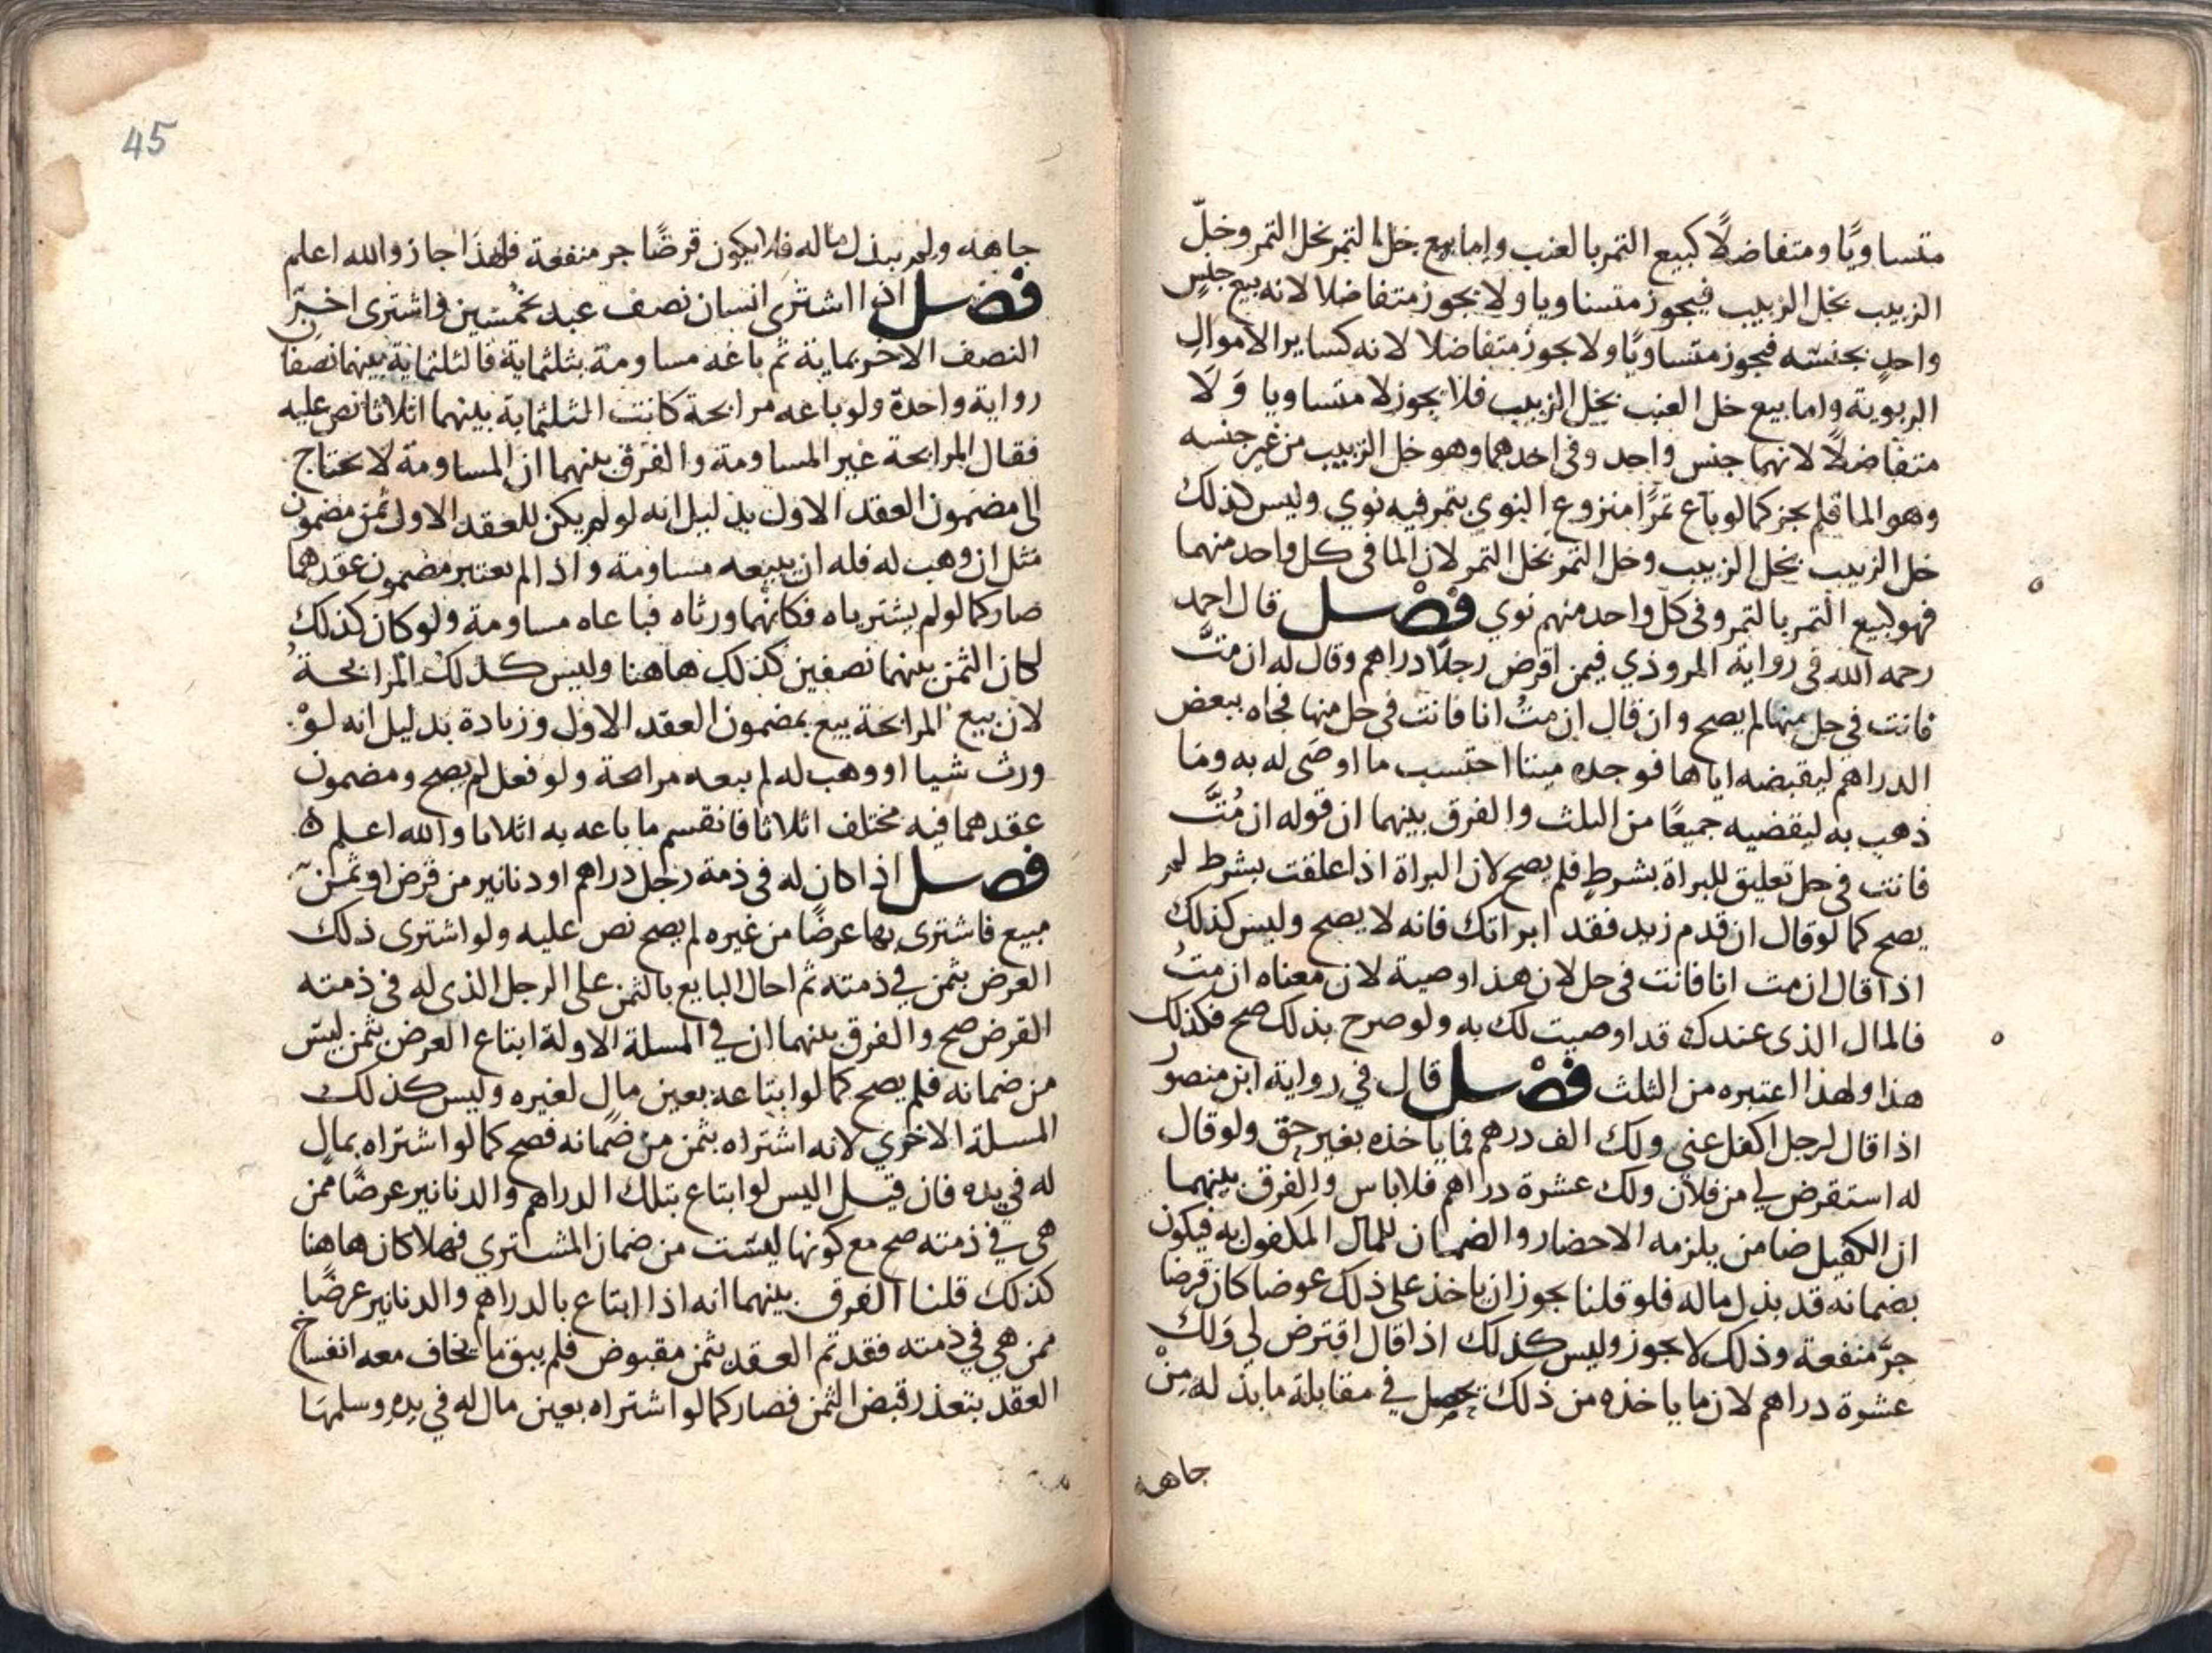 متساويًا ومتفاضلًا كبيع التمر بالعنب واما بيع خل التمر بخل التمر وخلّ
الزبيب بخل الزبيب فيجوز متساويا ولا يجوز متفاضلا لانه بيع جنس
واحد بجنسه فيجوز متساويًا ولا يجوز متفاضلا لانه كساير الاموال
الربوية واما بيع خل العنب بخل الزبيب فلا يجوز لا متساويا وَلَا
متفاضلًا لانهما جنس واحد وفي احدهما وهو خل الزبيب من غير جنسه
وهو الما فلم يجز كما لو باع تمرًا منزوع النوي بتمر فيه نوي وليس كذلك
خل الزبيب بخل الزبيب وخل التمر بخل التمر لان الما في كل واحد منهما
فهو كبيع التمر بالتمر وفي كل واحد منهم نوي فصل قال احمد
رحمه الله في رواية المروذي فيمن اقرض رجلًا دراهم وقال له ان متَّ
فانت في حل منها لم يصح وان قال ان متُ انا فانت في حل منها فجاه ببعض
الدراهم ليقبضه اياها فوجده ميتا احتسب ما اوصَى له به وما
ذهب به ليقضيه جميعًا من الثلث والفرق بينهما ان قوله ان مُتَّ
فانت في حل تعليق للبراة بشرطٍ فلم يصح لان البراة اذا علقت بشرط لم
يصح كما لو قال ان قدم زيد فقد ابراتك فانه لا يصح وليس كذلك
اذا قال ان مت انا فانت في حل لان هذا وصية لان معناه ان متُ
فالمال الذي عندك قد اوصيت لك به ولو صرح بذلك صح فكذلك
هذا ولهذا اعتبره من الثلث فصل قال في رواية ابن منصور
اذا قال لرجل اكفل عني ولك الف درهم فما ياخذه بغير حق ولو قال
له استقرض لي من فلان ولك عشرة دراهم فلا باس والفرق بينهما
ان الكفيل ضامن يلزمه الاحضار والضمان للمال المكفول به فيكون
بضمانه قد بذل ماله فلو قلنا يجوز ان ياخذ على ذلك عوضا كان قرضا
جرَّ منفعة وذلك لا يجوز وليس كذلك اذا قال اقترض لي ولك
عشرة دراهم لان ما ياخذه من ذلك يحصل في مقابلة ما بذله مِنْ
جاهه
45
جاهه ولم يبذل ماله فلا يكون قرضًا جر منفعة فلهذا جاز والله اعلم
فصل اذا اشترى انسان نصف عبد بخمسين واشترى اخر
النصف الاخر بماية ثم باعه مساومة بثلثماية فالثلثماية بينهما نصفان
رواية واحدة ولو باعه مرابحة كانت الثلثماية بينهما اثلاثا نص عليه
فقال المرابحة غير المساومة والفرق بينهما ان المساومة لا تحتاج
الى مضمون العقد الاول بدليل انه لو لم يكن للعقد الاول ثمن مضمون
مثل ان وهب له فله ان يبيعه مساومة واذا لم يعتبر مضمون عقدهما
صار كما لو لم يشترياه فكانهما ورثاه فباعاه مساومة ولو كان كذلك
لكان الثمن بينهما نصفين كذلك هاهنا وليس كذلك المرابحةُ
لان بيع المرابحة بيع بمضمون العقد الاول وزيادة بدليل انه لوْ
ورث شيا او وهب له لم يبعه مرابحة ولو فعل لم يصح ومضمون
عقدهما فيه مختلف اثلاثا فانقسم ما باعه به اثلاثا والله اعلم ه
فصل اذا كان له في ذمة رجل دراهم او دنانير من قرض او ثمن
مبيع فاشترى بها عرضًا من غيره لم يصح نص عليه ولو اشترى ذلك
العرض بثمن في ذمته ثم احال البايع بالثمن على الرجل الذي له في ذمته
القرض صح والفرق بينهما ان في المسلة الاولة ابتاع العرض بثمن ليس
من ضمانه فلم يصح كما لو ابتاعه بعين مال لغيره وليس كذلك
المسلة الاخري لانه اشتراه بثمن من ضمانه فصح كما لو اشتراه بمال
له في يده فان قيل اليس لو ابتاع بتلك الدراهم والدنانير عرضًا ممن
هي في ذمته صح مع كونها ليست من ضمان المشتري فهلا كان هاهنا
كذلك قلنا الفرق بينهما انه اذا ابتاع بالدراهم والدنانير عرضًا
ممن هي في ذمته فقد تم العقد بثمن مقبوض فلم يبق ما يخاف معه انفساخ
العقد بتعذر قبض الثمن فصار كما لو اشتراه بعين مال له في يده وسلمها